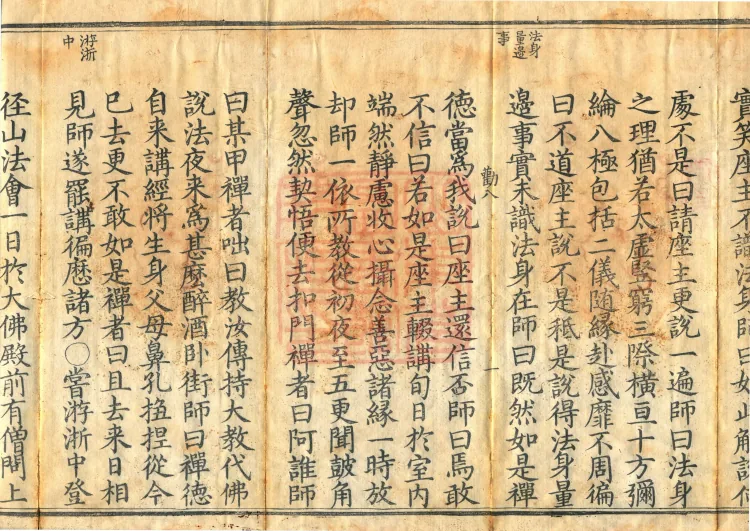 實笑座主不識法身師曰如此解說何
法身
量邊
事
處不是曰請座主更說一遍師曰法身
之理猶若太虛竪窮三際橫亘十方彌
綸八極包括二儀随緣赴感靡不周徧
曰不道座主說不是秪是說得法身量
邊事實未識法身在師曰既然如是禪
勸八 一
德當爲我說曰座主還信否師曰焉敢
不信曰若如是座主輟講旬日於室內
端然靜慮收心攝念善惡諸緣一時放
却師一依所教從初夜至五更聞鼓角
聲忽然契悟便去扣門禪者曰阿誰師
曰某甲禪者咄曰教汝傳持大教代佛
說法夜来爲甚麽醉酒卧街師曰禪德
自来講經將生身父母鼻孔扭捏從今
已去更不敢如是禪者曰且去来日相
游浙
中
見師遂罷講徧歷諸方○甞游浙中登
径山法會一日於大佛殿前有僧問上